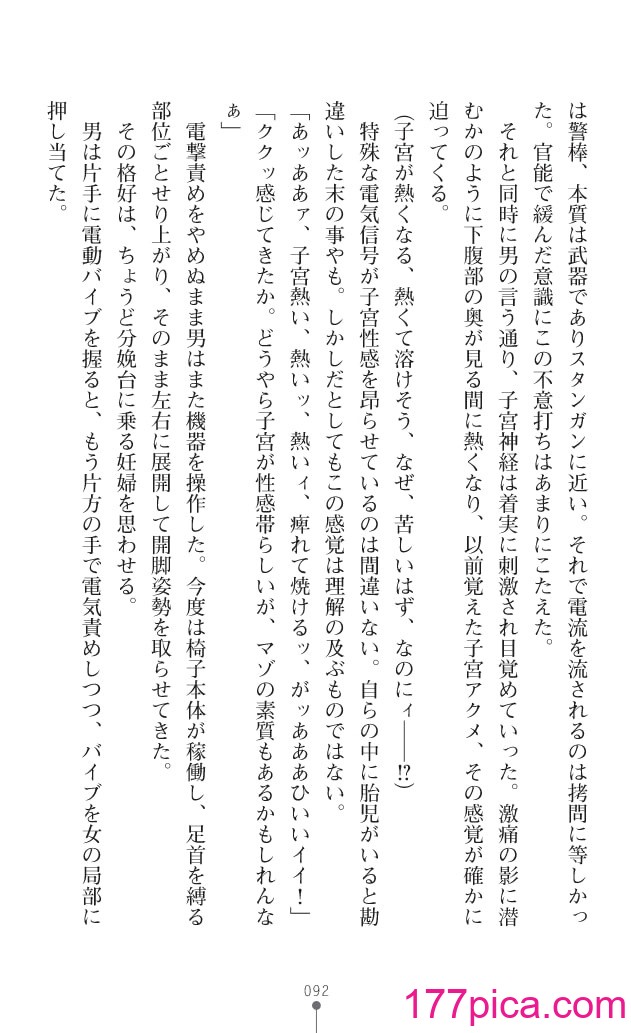 は警棒、本質は武器でありスタンガンに近い。それで電流を流されるのは拷問に等しかっ
た。官能で緩んだ意識にこの不意打ちはあまりにこたえた。
それと同時に男の言う通り、子宮神経は着実に刺激され目覚めていった。激痛の影に潜
むかのように下腹部の奥が見る間に熱くなり、以前覚えた子宮アクメ、その感覚が確かに
迫ってくる。
(子宮が熱くなる、熱くて溶けそう、なぜ、苦しいはず、なのにィ――!?)
特殊な電気信号が子宮性感を昂らせているのは間違いない。自らの中に胎児がいると勘
違いした末の事やも。しかしだとしてもこの感覚は理解の及ぶものではない。
「あッああァ、子宮熱い、熱いッ、熱いィ、痺れて焼けるッ、がッあああひいいイイ！」
「ククッ感じてきたか。どうやら子宮が性感帯らしいが、マゾの素質もあるかもしれんな
ぁ」
電撃責めをやめぬまま男はまた機器を操作した。今度は椅子本体が稼働し、足首を縛る
部位ごとせり上がり、そのまま左右に展開して開脚姿勢を取らせてきた。
その格好は、ちょうど分娩台に乗る妊婦を思わせる。
男は片手に電動バイブを握ると、もう片方の手で電気責めしつつ、バイブを女の局部に
押し当てた。
092
177pica.com